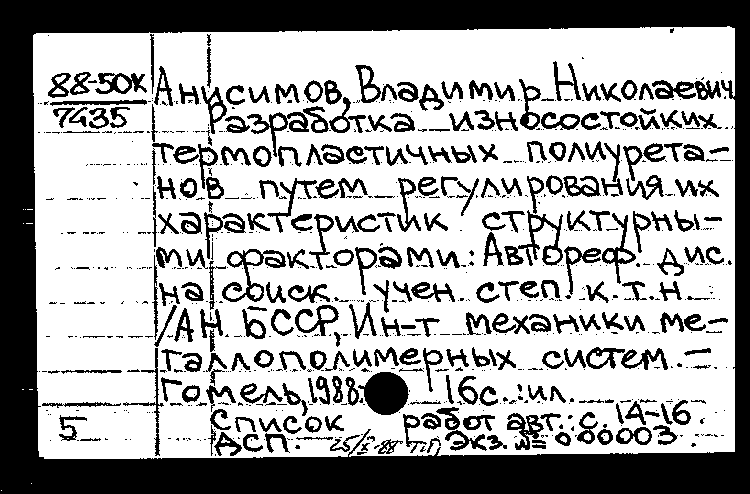 88-50К
7435
Анисимов, Владимир Николаевич
Разработка износостойких
термопластичных полиурета-
нов путем регулирования их
характеристик структурны-
ми факторами: Автореф. дис.
на соиск. учен. степ. к.т.н.
/АН БССР, Ин-т механики ме-
таллополимерных систем. —
Гомель, 1988. 16с.: ил.
5 Список работ авт.: с. 14-16.
ДСП. Экз. № 000003.